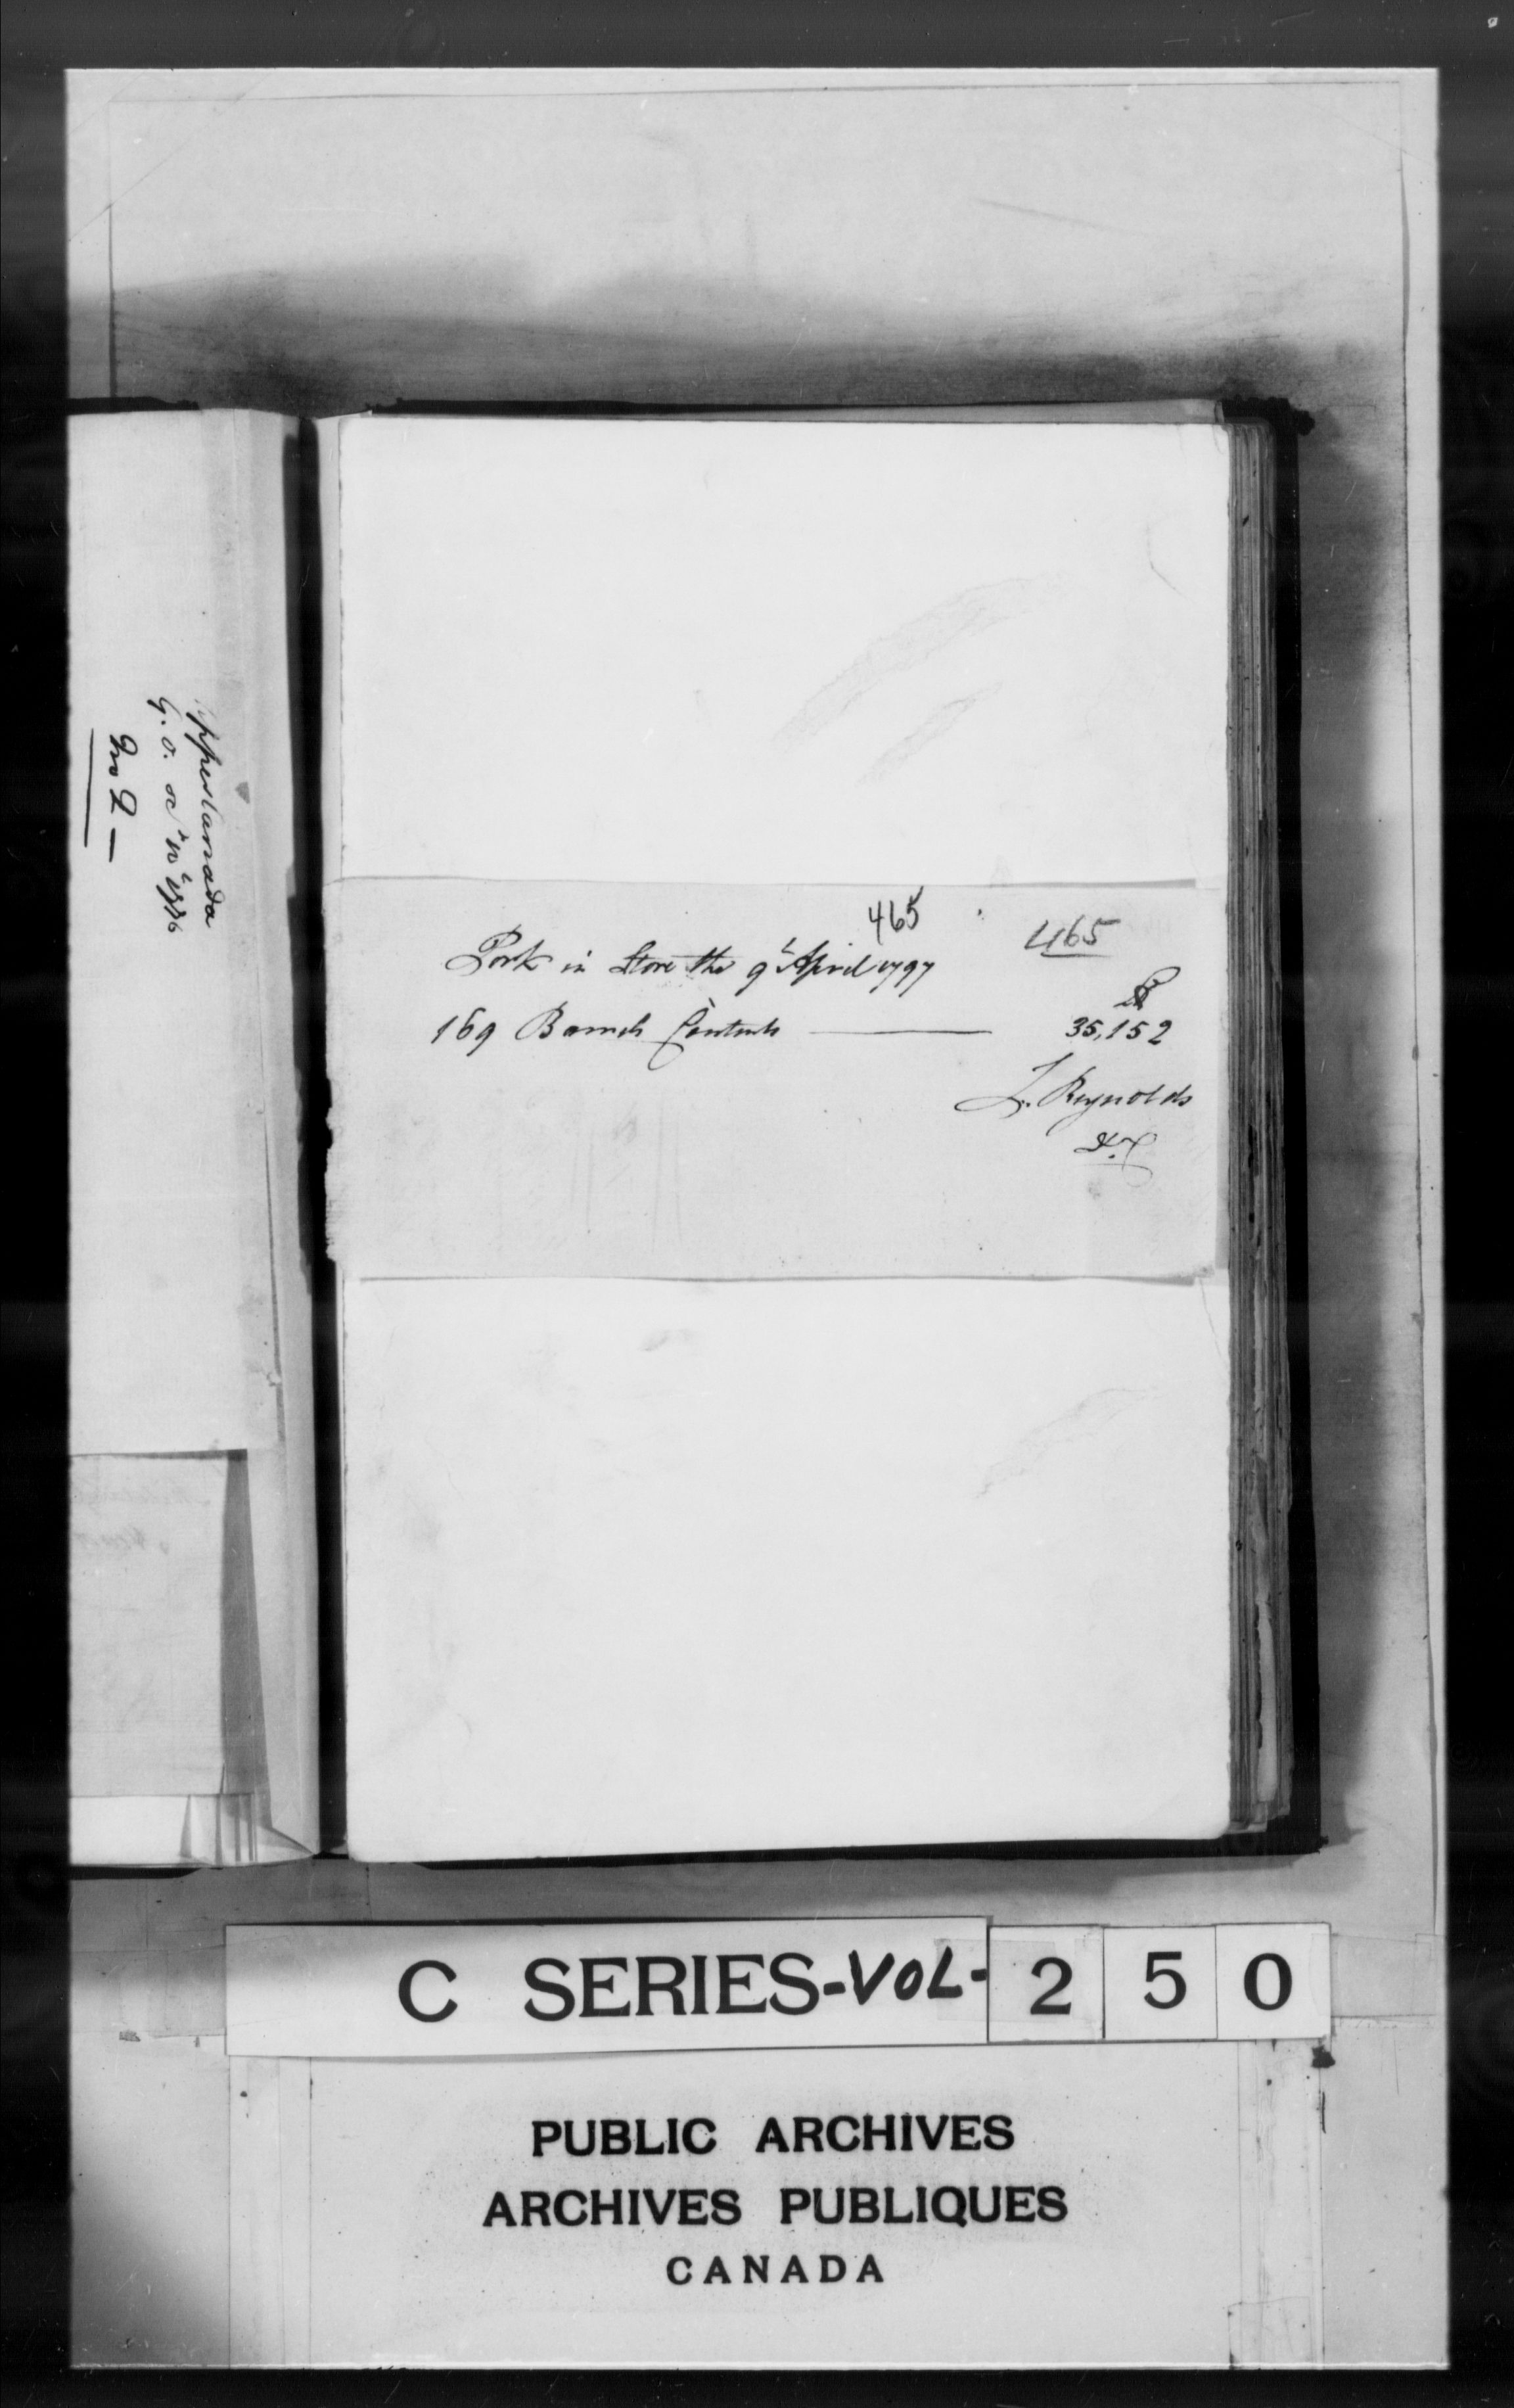 Upper Canada
G. O. Oct 10th 1796
No 2 —
465
465
Pork in Store the 9th April 1797
lb
169 Barrels Contents ——— 35,152
T. Reynolds
C SERIES-VOL-250
PUBLIC ARCHIVES
ARCHIVES PUBLIQUES
CANADA